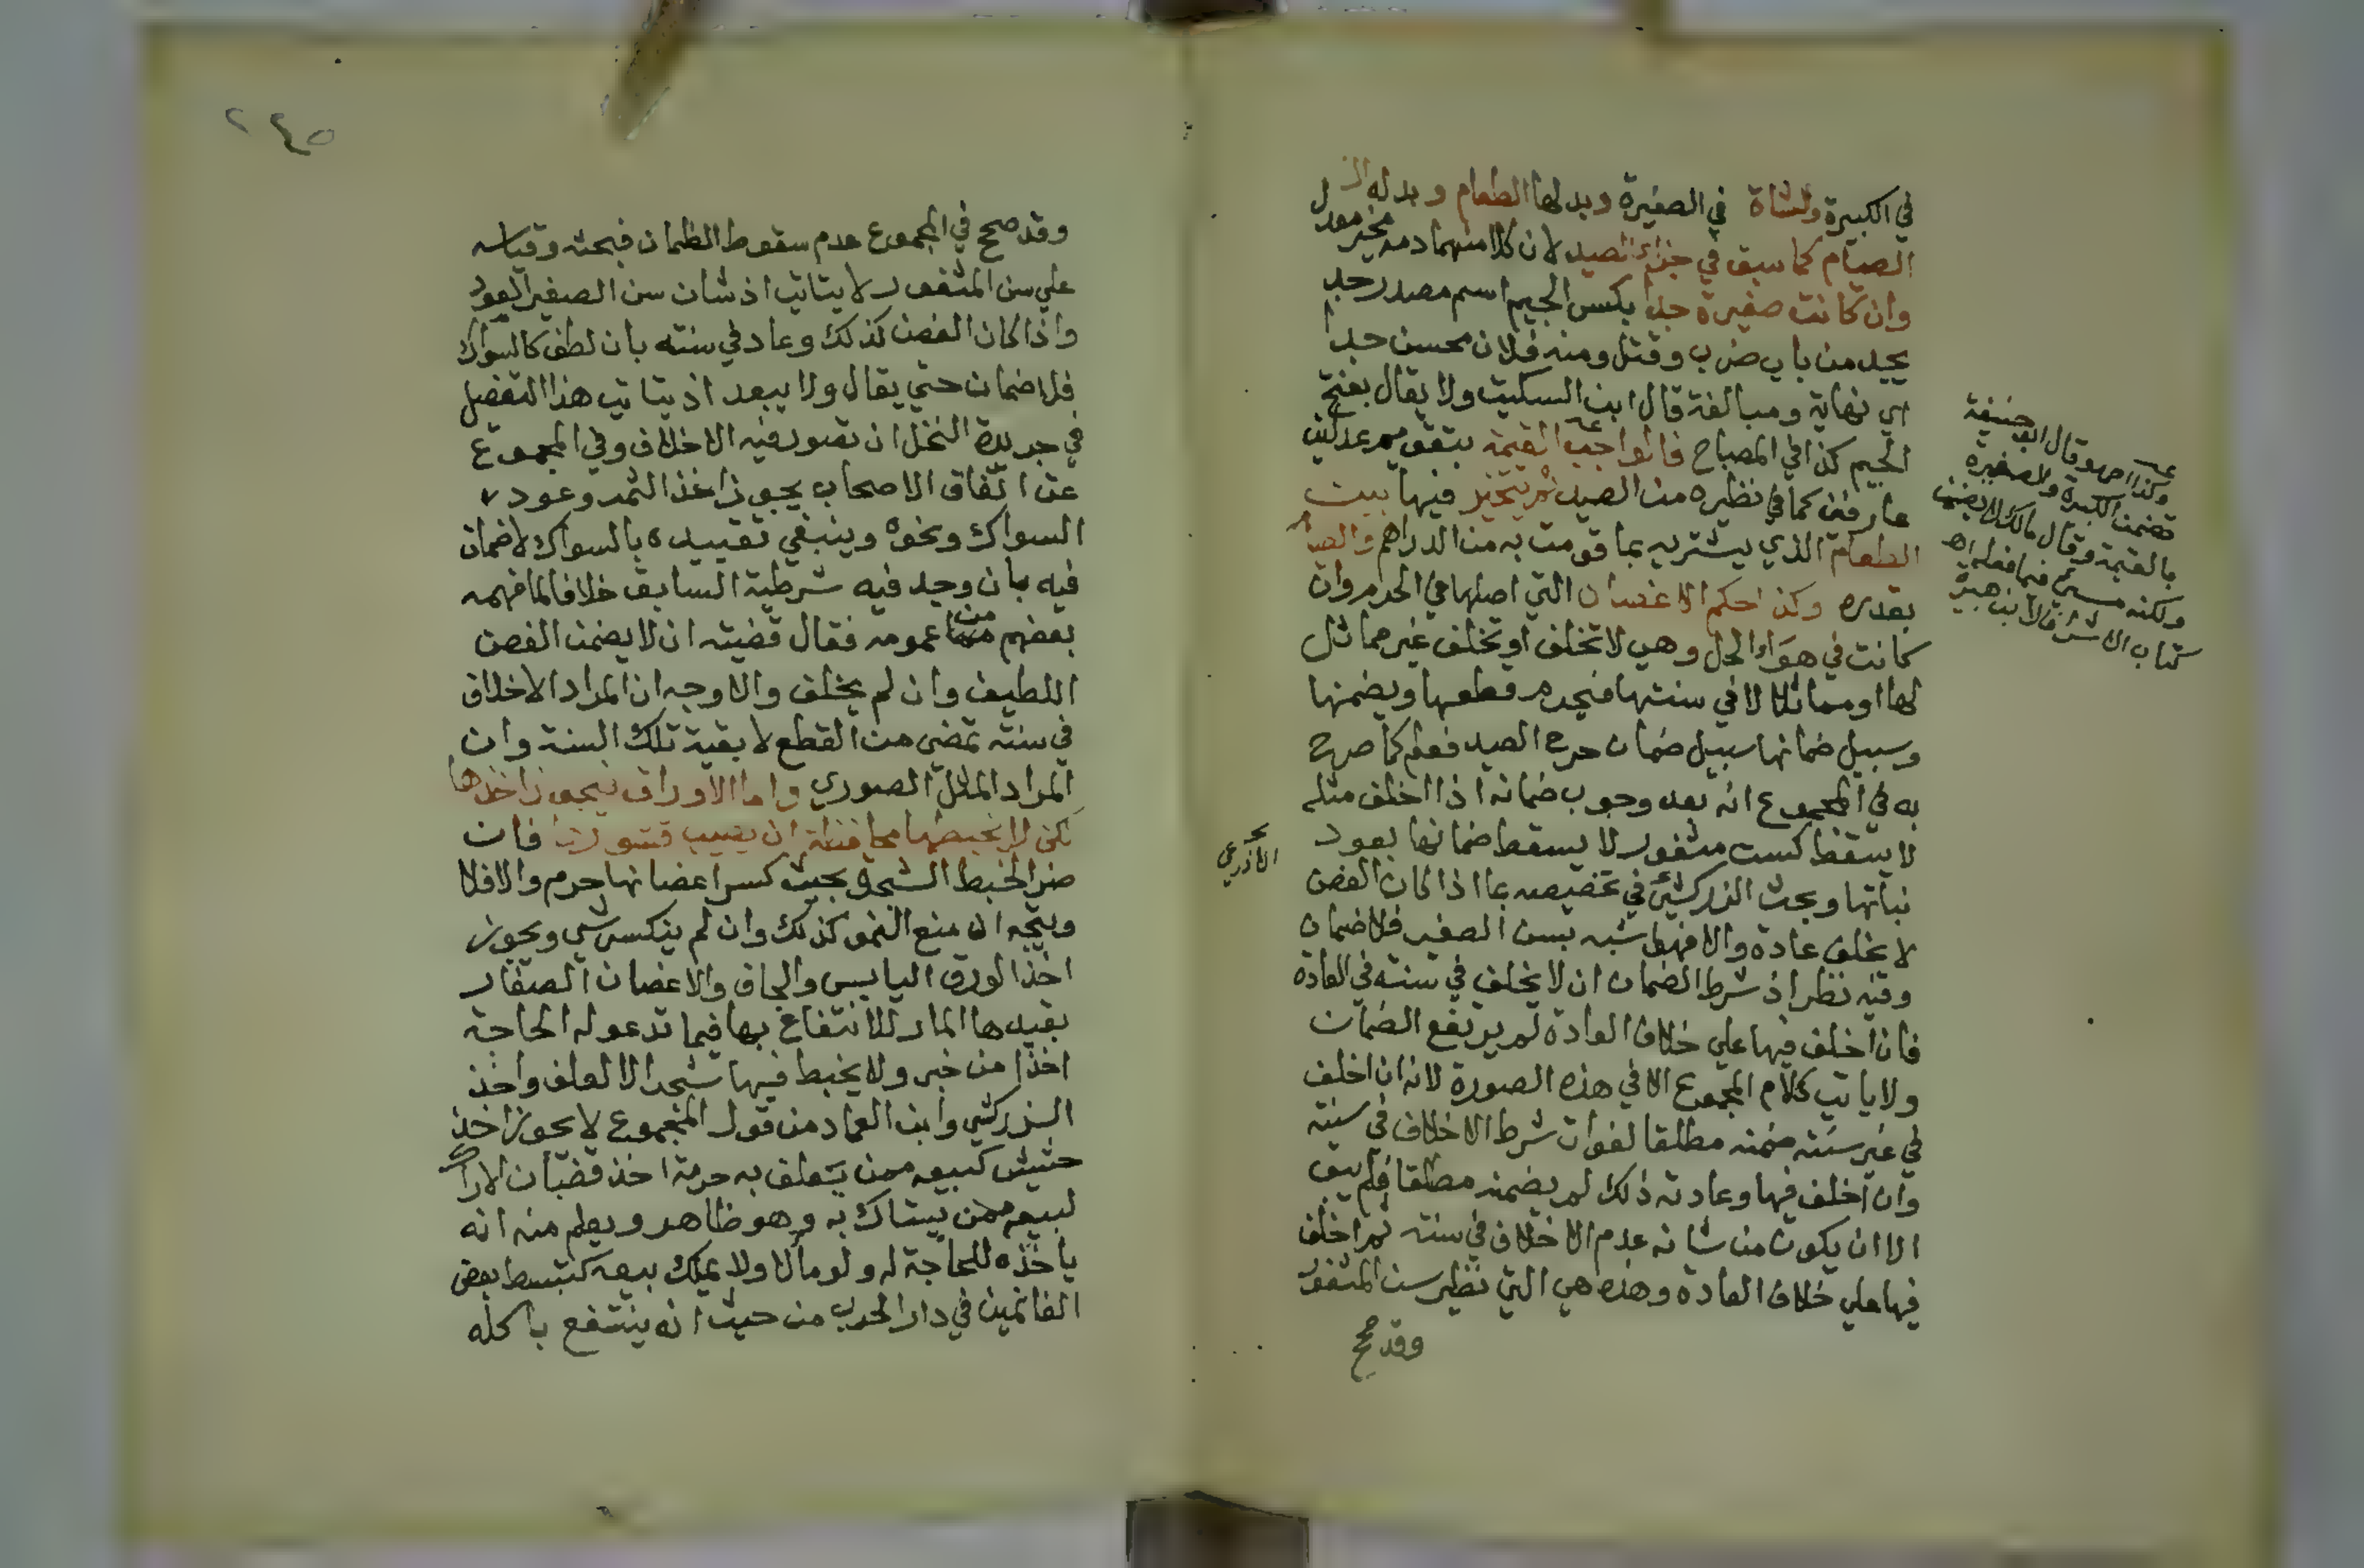 في الكبيرة والشاة في الصغيرة وبدلها الطعام وبدله
الصيام كما سبق في جزاء الصيد لان كلا منهما دم تخيير
وان كانت صغيرة جدا بكسر الجيم اسم مصدر جد
يجد من باب ضرب وقتل ومنه فلان محسن جدا
اي نهاية ومبالغة قال ابن السكيت ولا يقال بفتح
الجيم كذا في المصباح فالواجب القيمة بتقويم عدلين
عارفين كما في نظيره من الصيد ثم يتخير فيها بين
الطعام الذي يشتريه بما قومت به من الدراهم والصيام
بقدره وكذا حكم الاغصان التي اصلها في الحرم وان
كانت في هواء الحل وهي لا تخلف او تخلف غير مماثل
لها او مماثلا لا في سنتها فيحرم قطعها ويضمنها
وسبيل ضمانها سبيل ضمان جرح الصيد فعلم كما صرح
به في المجموع انه بعد وجوب ضمانه اذا اخلف مثله
لا يسقط كسن مثغور لا يسقط ضمانها بعود
نباتها وبحث الزركشي في تخصيصه بما اذا كان الغصن
لا يخلف عادة والا فهو اشبه بسن الصغير فلا ضمان
وفيه نظر اذ شرط الضمان ان لا يخلف في سنته في العادة
فان اخلف فيها علي خلاف العادة لم يرتفع الضمان
ولا ياتي كلام المجموع الا في هذه الصورة لانه ان اخلف
في غير سنته ضمنه مطلقا لفوات شرط الاخلاف في سنته
وان اخلف فيها وعادته ذلك لم يضمنه مطلقا فلم يبق
الا ان يكون من شانه عدم الاخلاف في سنته ثم اخلف
فيها علي خلاف العادة وهذه هي التي نظير سن المثغور
وقد صح
وكذا اصه وقال ابو حنيفة
تضمن الكبيرة والصغيرة
بالقيمة وقال مالك لا يضمن
ولكنه مسيئ فيما فعله اه
كتاب الاشراف لابن هبيرة
الاذرعي
٢٤٥
وقد صحح في المجموع عدم سقوط الضمان فبحثه وقياسه
علي سن المثغور لا يتاتي اذ شان سن الصغير العود
واذا كان الغصن كذلك وعاد في سنته بان لطف كالسواك
فلا ضمان حتي يقال ولا يبعد ان يتاتي هذا التفصيل
في جريدة النخل ان تصور فيه الاخلاف وفي المجموع
عن اتفاق الاصحاب يجوز اخذ الثمر وعود
السواك ونحوه وينبغي تقييده بالسواك لا ضمان
فيه بان وجد فيه شرطية السابق خلافا لما فهمه
بعضهم من عمومه فقال قضيته ان لا يضمن الغصن
اللطيف وان لم يخلف والاوجه ان المراد الاخلاف
في سنته تمضي من القطع لا بقية تلك السنة وان
المراد المثل الصوري واما الاوراق فيجوز اخذها
لكن لا يخبطها مخافة ان يصيب قشورها فان
ضر الخبط الشجرة بحيث كسر اغصانها حرم والا فلا
ويتجه ان منع النمو كذلك وان لم ينكسر شي ويجوز
اخذ الورق اليابس والجاف والاغصان الصغار
بقيدها المار للانتفاع بها فيما تدعو له الحاجة
اخذا من خبر ولا يخبط فيها شجرا الا لعلف واخذ
الزركشي وابن العماد من قول المجموع لا يجوز اخذ
حشيش كبيعه ممن يتعلف به حرمة اخذ قضبان الاراك
لبيعه ممن يستاك به وهو ظاهر ويعلم منه انه
ياخذه للحاجة له ولو مالا ولا يملك بيعه كتبسط بعض
الغانمين في دار الحرب من حيث انه ينتفع باكله